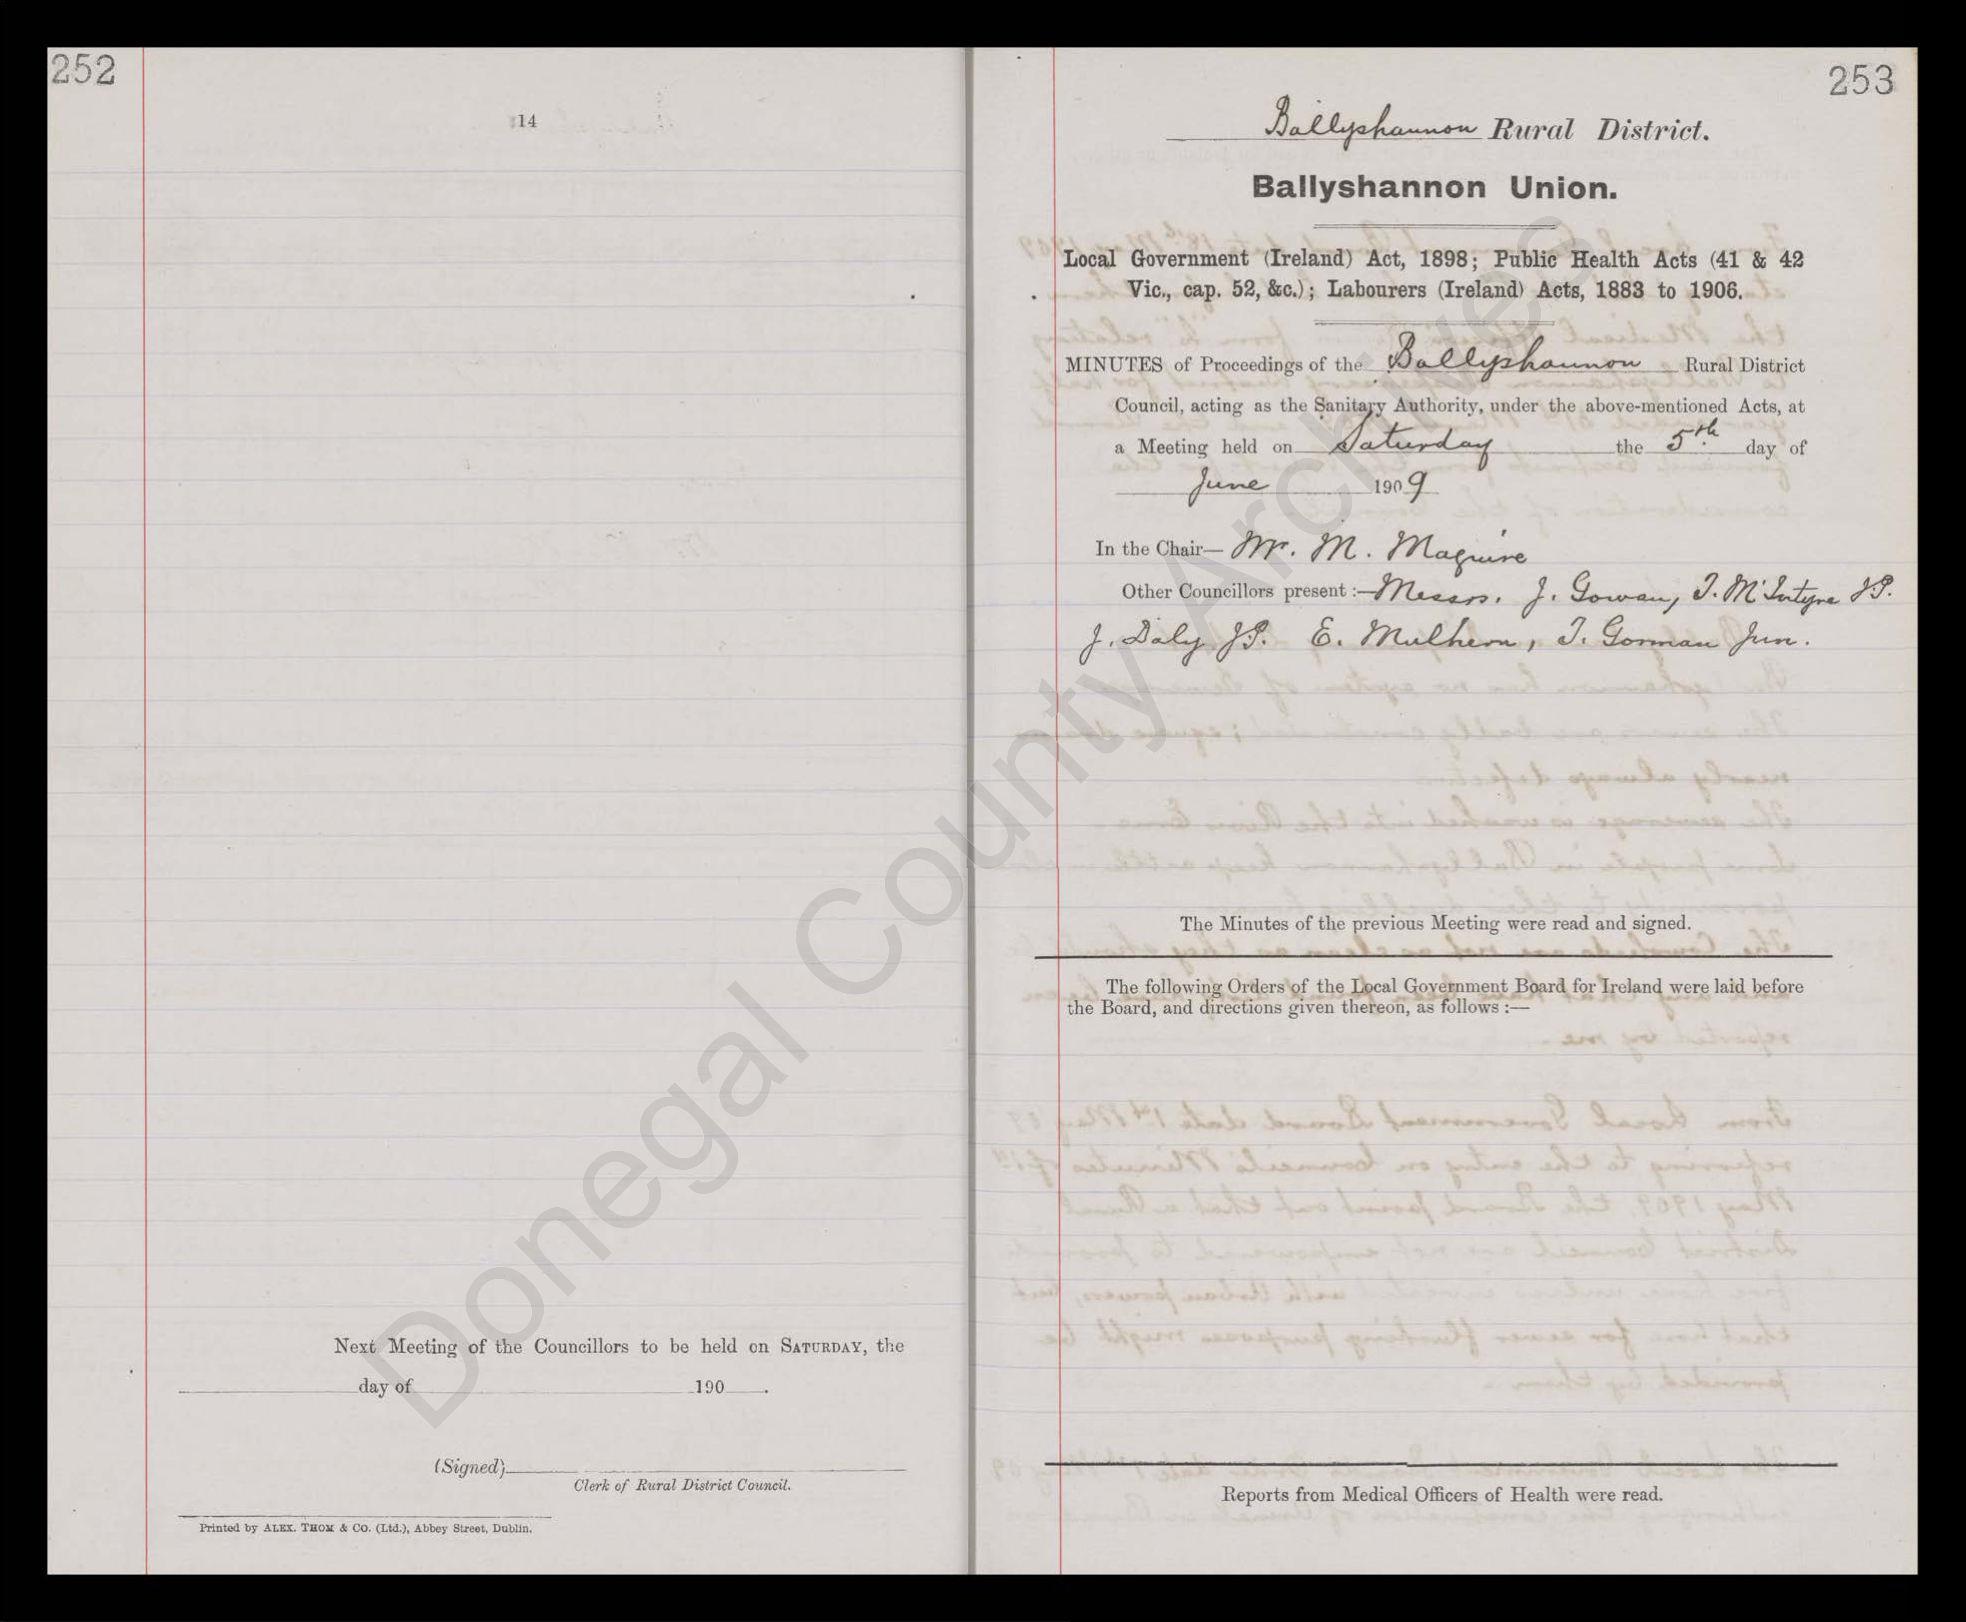 252
14
Next Meeting of the Councillors to be held on SATURDAY, the
day of 190 .
(Signed)
Clerk of Rural District Council.
Printed by ALEX. THOM & CO. (Ltd.), Abbey Street, Dublin.
253
Ballyshannon Rural District.
Ballyshannon Union.
Local Government (Ireland) Act, 1898; Public Health Acts (41 & 42
Vic., cap. 52, &c.); Labourers (Ireland) Acts, 1883 to 1906.
MINUTES of Proceedings of the Ballyshannon Rural District
Council, acting as the Sanitary Authority, under the above-mentioned Acts, at
a Meeting held on Saturday the 5th. day of
June 1909
In the Chair— Mr. M. Maguire
Other Councillors present :— Messrs. J. Gowan, T. McIntyre J.P.
J. Daly J.P. E. Mulhern, T. Gorman Jun.
The Minutes of the previous Meeting were read and signed.
The following Orders of the Local Government Board for Ireland were laid before
the Board, and directions given thereon, as follows :—
Reports from Medical Officers of Health were read.
Donegal County Archives